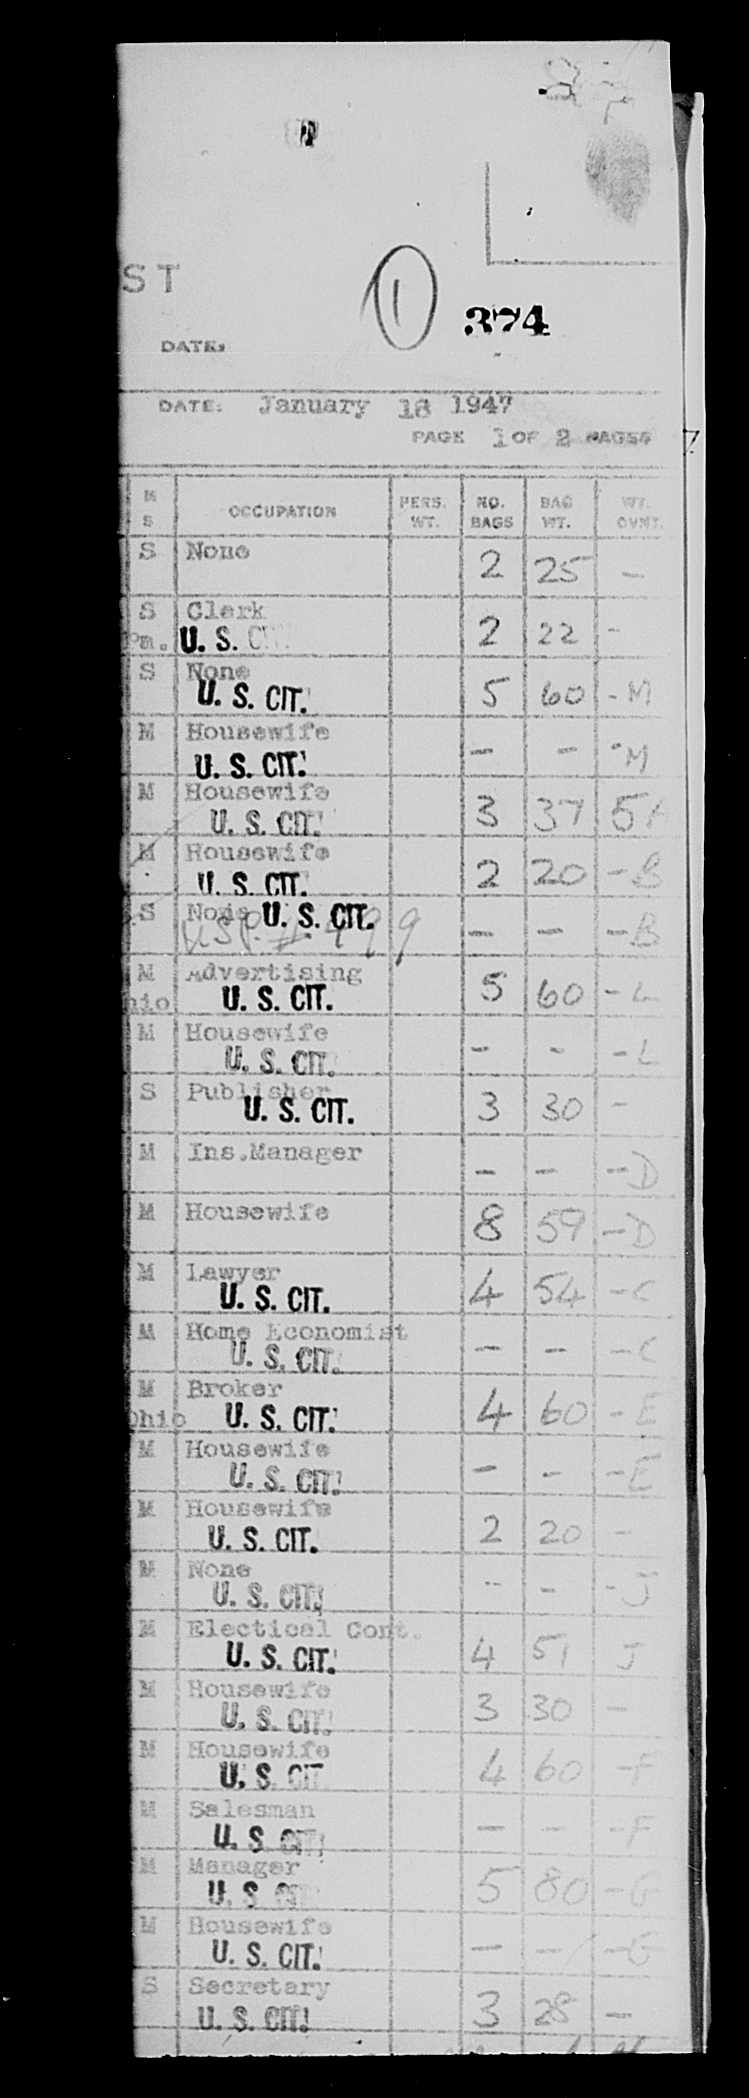 ST
1
374
DATE:
DATE: January 18 1947
PAGE 1 OF 2 PAGES
M S OCCUPATION PERS. WT. NO. BAGS BAG WT. WT. OVWT.
S None 2 25 -
S Clerk 2 22 -
Pa. U. S. CIT.
S None 5 60 - M
U. S. CIT.
M Housewife - - - M
U. S. CIT.
M Housewife 3 37 51
U. S. CIT.
M Housewife 2 20 - B
U. S. CIT.
S None U. S. CIT. - - - B
USP. # 499
M Advertising 5 60 - L
hio U. S. CIT.
M Housewife - - - L
U. S. CIT.
S Publisher 3 30 -
U. S. CIT.
M Ins.Manager - - - D
M Housewife 8 59 - D
M Lawyer 4 54 - C
U. S. CIT.
M Home Economist - - - C
U. S. CIT.
M Broker 4 60 - E
Ohio U. S. CIT.
M Housewife - - - E
U. S. CIT.
M Housewife 2 20 -
U. S. CIT.
M None - - - J
U. S. CIT.
M Electical Cont. 4 51 J
U. S. CIT.
M Housewife 3 30 -
U. S. CIT.
M Housewife 4 60 - F
U. S. CIT
M Salesman - - - F
U. S. CIT.
M Manager 5 80 - G
U. S. CIT
M Housewife - - - G
U. S. CIT.
S Secretary 3 28 -
U. S. CIT.